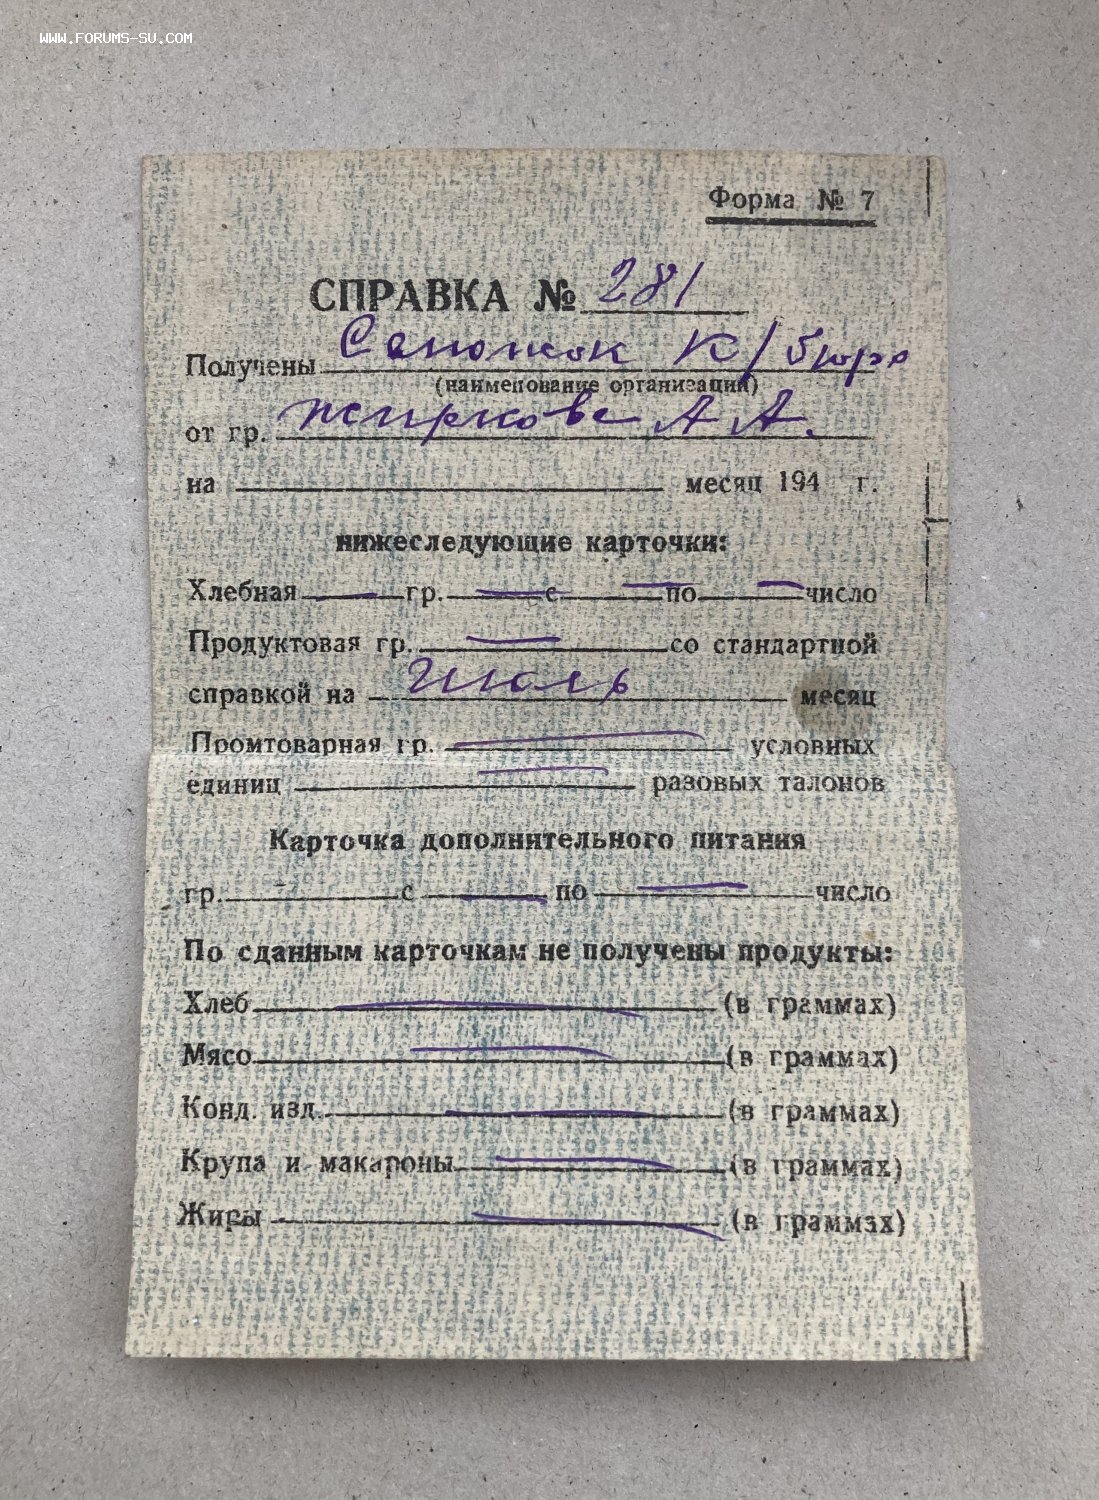 WWW.FORUMS-SU.COM
Форма № 7
СПРАВКА № 281
Получены К/бюро
(наименование организации)
от гр. Жиркова А. А.
на месяц 194 г.
нижеследующие карточки:
Хлебная — гр. — с — по — число
Продуктовая гр. — со стандартной
справкой на Июль месяц
Промтоварная гр. — условных
единиц — разовых талонов
Карточка дополнительного питания
гр. с — по — число
По сданным карточкам не получены продукты:
Хлеб — (в граммах)
Мясо — (в граммах)
Конд. изд. — (в граммах)
Крупа и макароны — (в граммах)
Жиры — (в граммах)